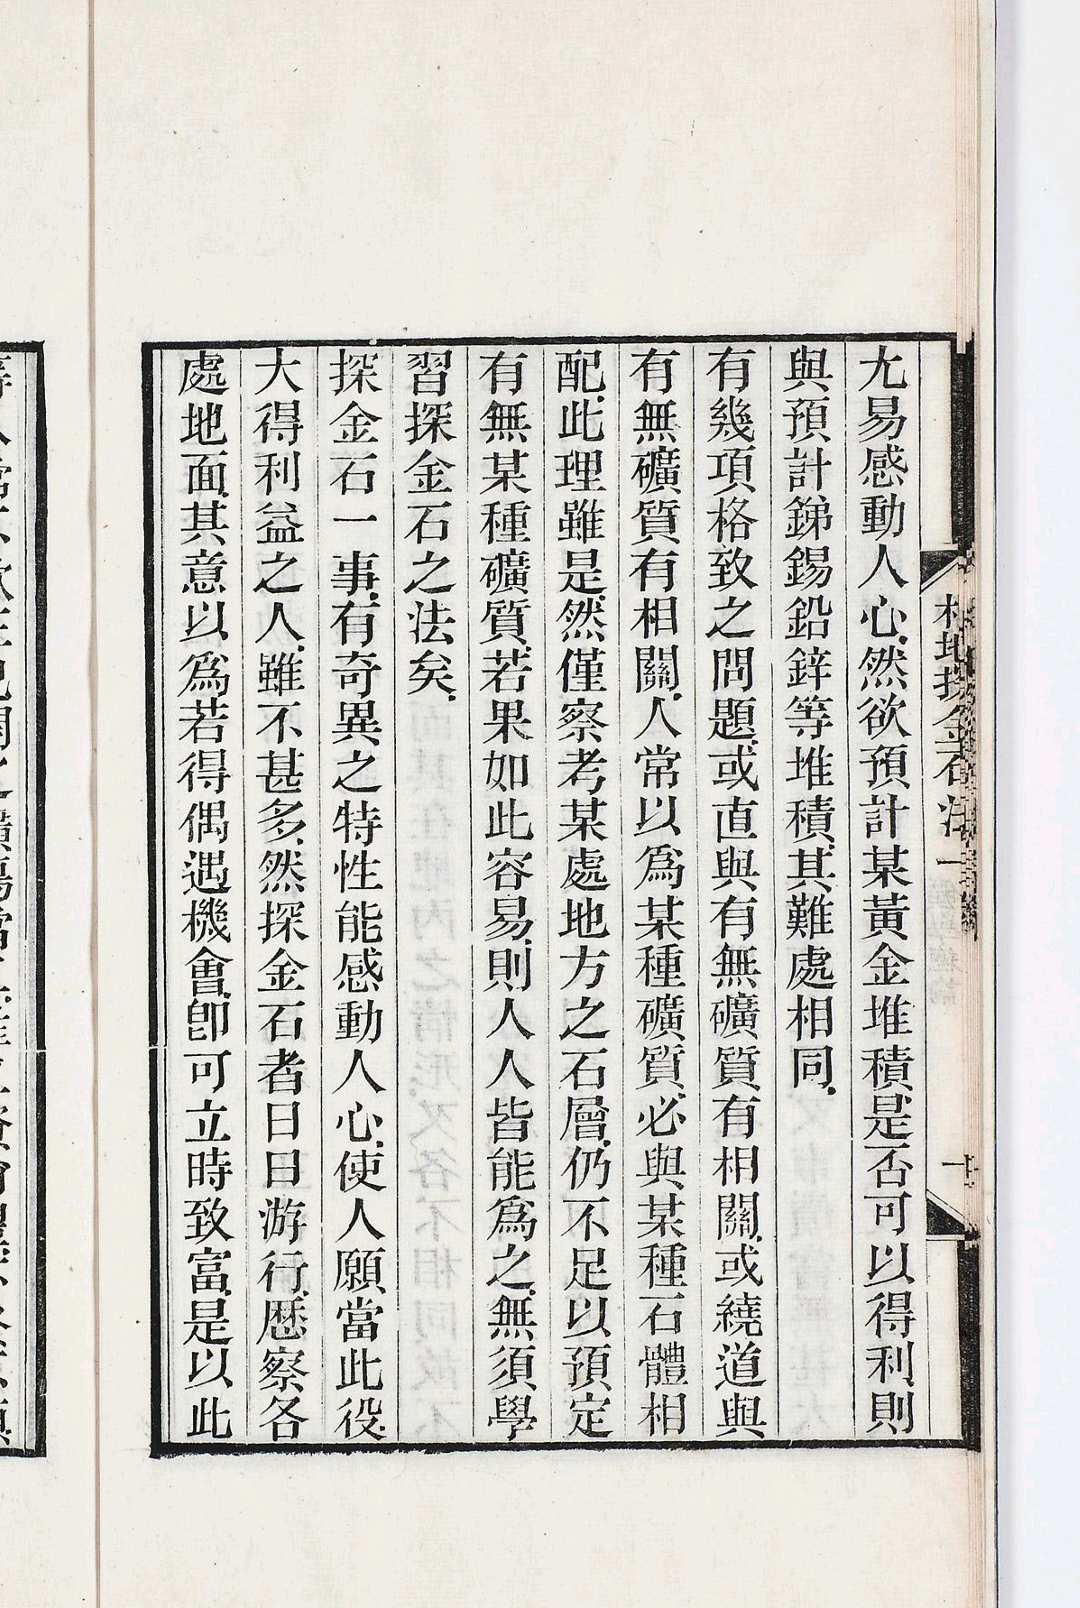 尢易感動人心.然欲預計某黃金堆積.是否可以得利.則
與預計銻錫鉛鋅等堆積.其難處相同.
有幾項格致之問題.或直與有無礦質有相關.或繞道與
有無礦質有相關.人常以爲某種礦質.必與某種石體相
配.此理雖是.然僅察考某處地方之石層.仍不足以預定
有無某種礦質.若果如此容易.則人人皆能爲之.無須學
習探金石之法矣.
探金石一事.有奇異之特性.能感動人心.使人願當此役.
大得利益之人.雖不甚多.然探金石者日日游行.歷察各
處地面.其意以爲若得偶遇機會.卽可立時致富.是以此